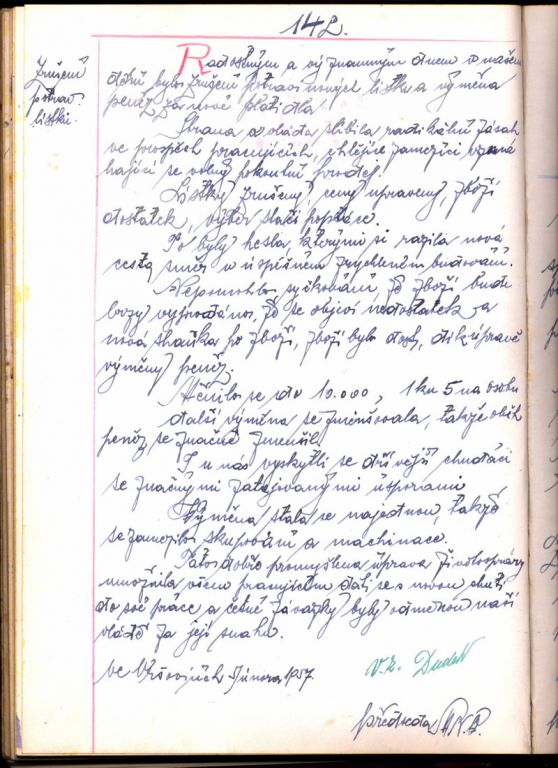 142.
Zrušení
potrav.
lístků.
Radostným a významným dnem v našem
údobí bylo zrušení potravinových lístků a výměna
peněz za nové platidla.
Strana a vláda slíbila radikální zásah
ve prospěch pracujících, chtějíce zameziti
se volný pokoutní prodej.
Lístky zrušeny, ceny upraveny, zboží
dostatek, výběr stačí poptávce.
To byly hesla, kterými si razila nová
cesta směr v úspěšném zrychleném budování.
Nepomohlo syčkování, že zboží bude
brzy vyprodáno, že se objeví nedostatek a
nová sháňka po zboží, zboží bylo dosti, dík úpravě
výměny peněz.
se do 10.000, 1 ku 5 na osobu
další výměna se zmenšovala, takže oběh
peněz se značně zmenšil.
I u nás vyskytli se dřívější chudáci
se značnými zatajovanými úsporami.
Výměna stala se najednou, takže
se zamezilo skupování a machinace.
Tato dobře promyšlena úprava živ.
umožnila všem pracujícím dáti se s novou chutí
do své práce a četné závazky byly odměnou naší
vládě za její snahu.
ve Vršovicích 5 února 1957.
V. r. Dudek
předseda MNV.